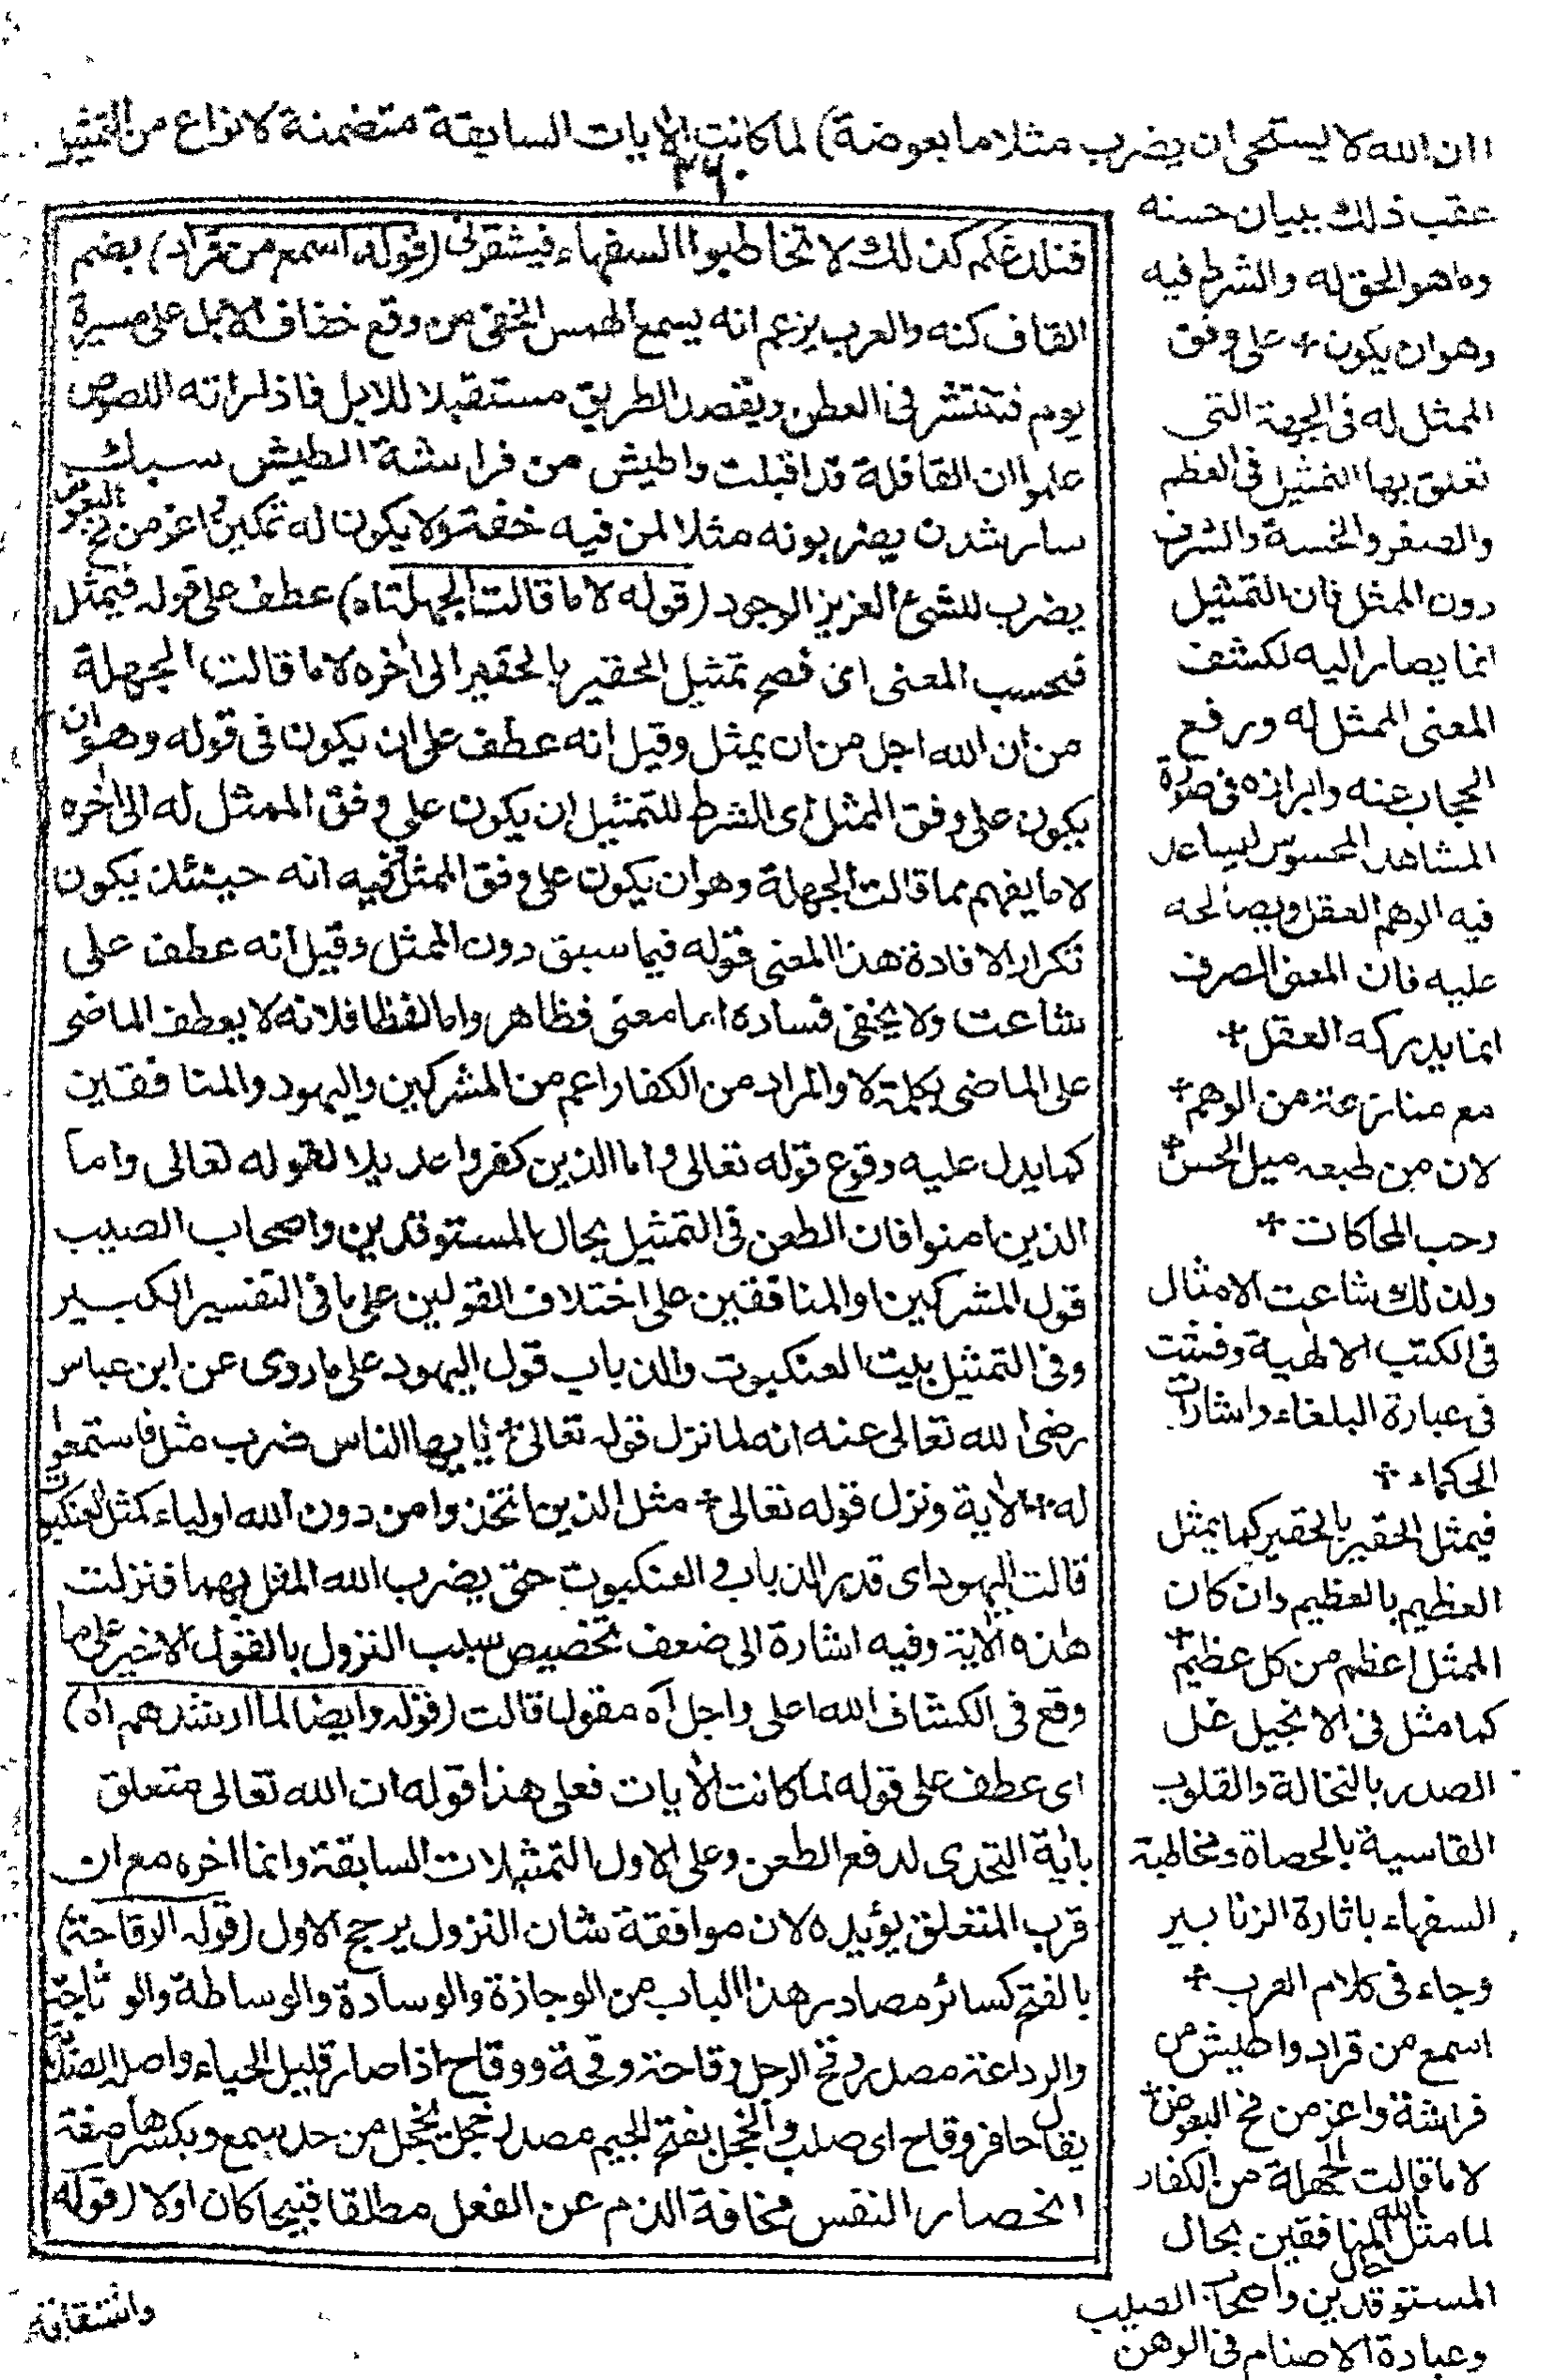 ان الله لا يستحى ان يضرب مثلا ما بعوضة) لما كانت الايات السابقة متضمنة لانواع من التمثيل
٢٦٠
عقب ذلك ببيان حسنه
وما هو الحق له والشرط فيه
وهو ان يكون + على وفق
الممثل له فى الجهة التى
تعلق بها التمثيل فى العظم
والصغر والخسة والشرف
دون الممثل فان التمثيل
انما يصار اليه لكشف
المعنى الممثل له ورفع
الحجاب عنه وابرازه فى صورة
المشاهد المحسوس ليساعد
فيه الوهم العقل ويصالحه
عليه فان المعنى الصرف
انما يدركه العقل +
مع منازعة من الوهم +
لان من طبعه ميل الحس +
وحب المحاكات +
ولذلك شاعت الامثال
فى الكتب الالهية وفشت
فى عبارة البلغاء واشارات
الحكماء +
فيمثل الحقير بالحقير كما يمثل
العظيم بالعظيم وان كان
الممثل اعظم من كل عظيم +
كما مثل فى الانجيل غل
الصدر بالنخالة والقلوب
القاسية بالحصاة ومخاطبة
السفهاء باثارة الزنابير
وجاء فى كلام العرب +
اسمع من قراد واطيش من
فراشة واعز من مخ البعوض +
لا ما قالت الجهلة من الكفار
لما مثل الله المنافقين بحال
المستوقدين واصحاب الصيب
وعبادة الاصنام فى الوهن
فتلدغكم كذلك لا تخاطبوا السفهاء فيشتموكم (قوله اسمع من قراد) بضم
القاف كنه والعرب يزعم انه يسمع الهمس الخفى من وقع خفاف الابل على مسيرة
يوم فتنتشر فى العطن ويقصد الطريق مستقبلا للابل فاذا راته اللصوص
علموا ان القافلة قد اقبلت واطيش من فراشة الطيش سبك
سار شدن يضربونه مثلا لمن فيه خفة ولا يكون له تمكين واعز من مخ البعوض
يضرب للشئ العزيز الوجود (قوله لا ما قالت الجهلة اه) عطف على قوله فيمثل
فبحسب المعنى اى فصح تمثيل الحقير بالحقير الى اخره لا ما قالت الجهلة
من ان الله اجل من ان يمثل وقيل انه عطف على ان يكون فى قوله وهو ان
يكون على وفق الممثل اى الشرط للتمثيل ان يكون على وفق الممثل له الى اخره
لا ما يفهم مما قالت الجهلة وهو ان يكون على وفق الممثل وفيه انه حينئذ يكون
تكرار الافادة هذا المعنى قوله فيما سبق دون الممثل وقيل انه عطف على
شاعت ولا يخفى فساده اما معنى فظاهر واما لفظا فلانه لا يعطف الماضى
على الماضى بكلمة لا والمراد من الكفار اعم من المشركين واليهود والمنافقين
كما يدل عليه وقوع قوله تعالى واما الذين كفروا عديلا لقوله تعالى واما
الذين امنوا فان الطعن فى التمثيل بحال المستوقدين واصحاب الصيب
قول المشركين او المنافقين على اختلاف القولين على ما فى التفسير الكبير
وفى التمثيل ببيت العنكبوت والذباب قول اليهود على ما روى عن ابن عباس
رضى الله تعالى عنه انه لما نزل قوله تعالى + يا ايها الناس ضرب مثل فاستمعوا
له + الاية ونزل قوله تعالى + مثل الذين اتخذوا من دون الله اولياء كمثل العنكبوت
قالت اليهود اى قدر للذباب والعنكبوت حتى يضرب الله المثل بهما فنزلت
هذه الاية وفيه اشارة الى ضعف تخصيص سبب النزول بالقول الاخير على ما
وقع فى الكشاف الله اعلى واجل اه مقول قالت (قوله وايضا لما ارشدهم اه)
اى عطف على قوله لما كانت الأيات فعلى هذا قوله ان الله تعالى متعلق
بأية التحدى لدفع الطعن وعلى الاول التمثيلات السابقة وانما اخره مع ان
قرب المتعلق يؤيده لان موافقة شان النزول يرجح الاول (قوله الوقاحة)
بالفتح كسائر مصادر هذا الباب من الوجازة والوسادة والوساطة والوثاجة
والرداعة مصدر وقح الرجل وقاحة وقحة ووقاح اذا صار قليل الحياء واصله الصلابة
يقال حافر وقاح اى صلب والخجل بفتح الجيم مصدر خجل يخجل من حد سمع وبكسرها صفة
انحصار النفس مخافة الذم عن الفعل مطلقا قبيحا كان اولا (قوله
واشتقاقه